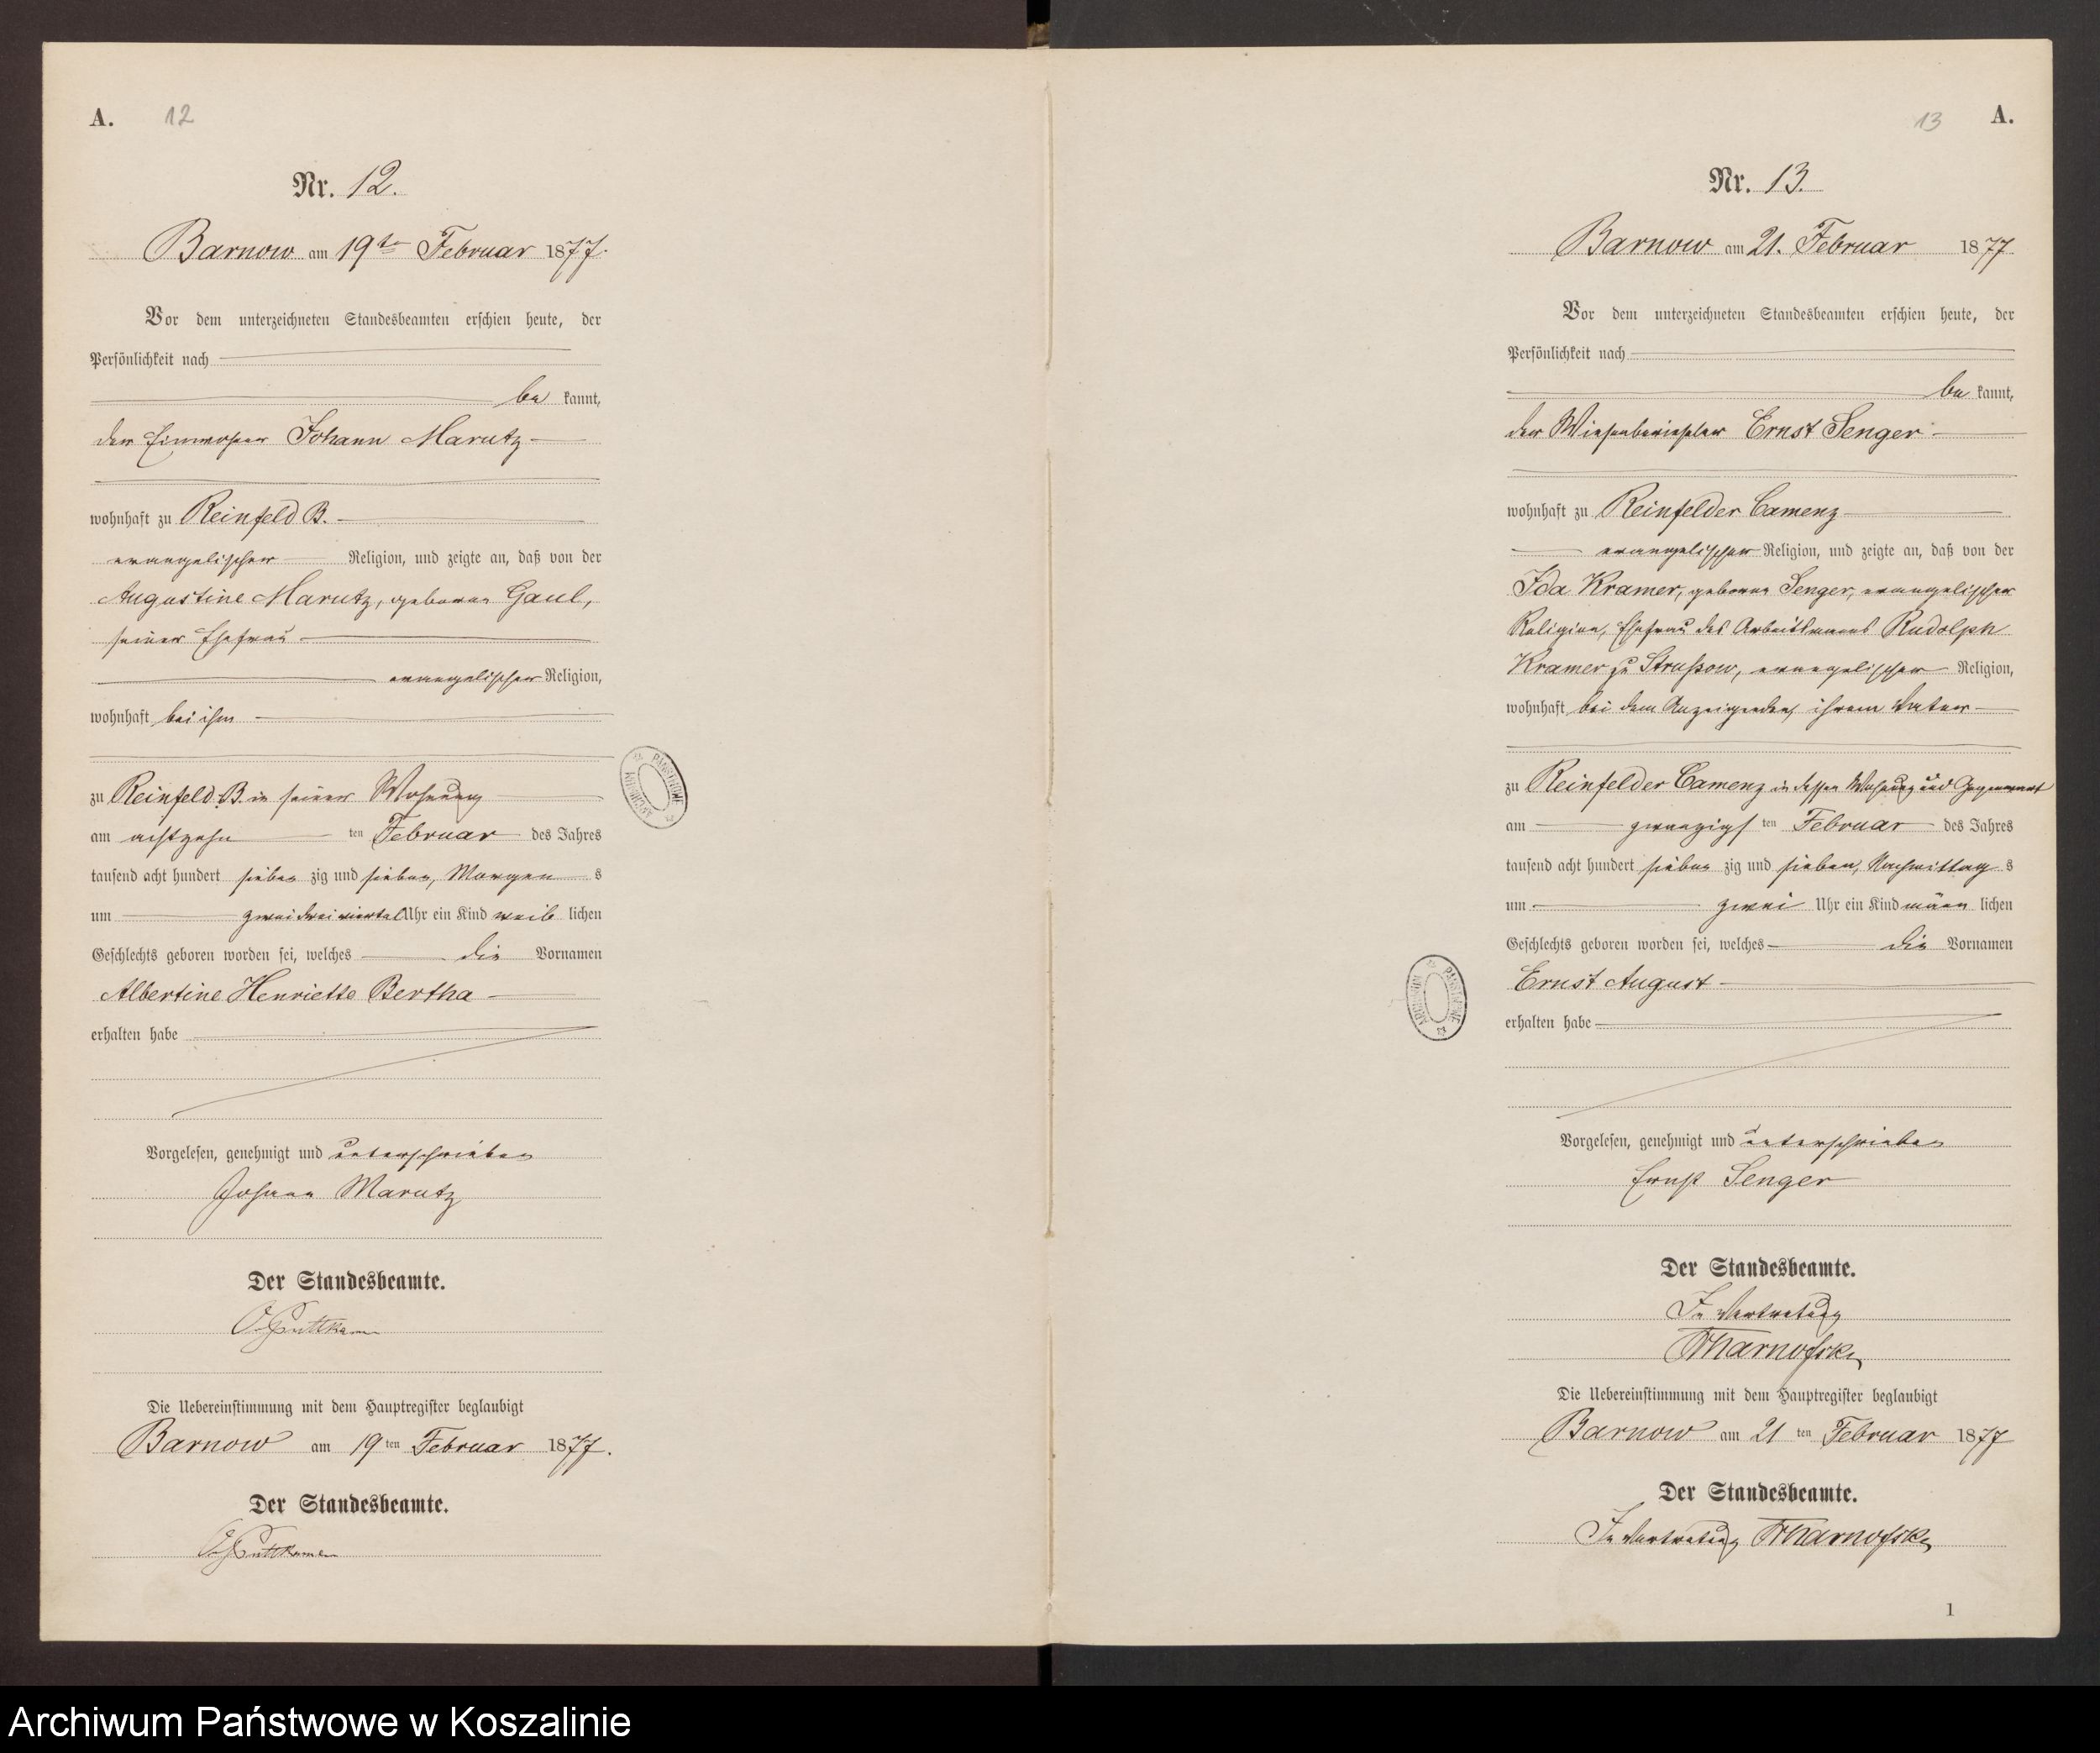 A. 12
Nr. 12.
Barnow am 19ten Februar 1877.
Vor dem unterzeichneten Standesbeamten erschien heute, der
Persönlichkeit nach
be kannt,
der Einwohner Johann Marutz
wohnhaft zu Reinfeld B.
evangelischer Religion, und zeigte an, daß von der
Augustine Marutz, geborne Gaul,
seiner Ehefrau
evangelischer Religion,
wohnhaft bei ihm
zu Reinfeld B. in seiner Wohnung
am achtzehn ten Februar des Jahres
tausend acht hundert sieben zig und sieben, Morgen s
um zwei dreiviertel Uhr ein Kind weib lichen
Geschlechts geboren worden sei, welches die Vornamen
Albertine Henriette Bertha
erhalten habe
Vorgelesen, genehmigt und unterschrieben
Johann Marutz
Der Standesbeamte.
Puttkamer
Die Uebereinstimmung mit dem Hauptregister beglaubigt
Barnow am 19 ten Februar 1877.
Der Standesbeamte.
Puttkamer
ARCHIWUM PAŃSTWOWE
13 A.
Nr. 13.
Barnow am 21. Februar 1877
Vor dem unterzeichneten Standesbeamten erschien heute, der
Persönlichkeit nach
be kannt,
der Wiesenberieseler Ernst Senger
wohnhaft zu Reinfelder Camenz
evangelischer Religion, und zeigte an, daß von der
Ida Kramer, geborne Senger, evangelischer
Religion, Ehefrau des Arbeitsmanns Rudolph
Kramer zu Strußow, evangelischer Religion,
wohnhaft bei dem Anzeigenden, ihrem Vater
zu Reinfelder Camenz in dessen Wohnung und Gegenwart
am zwanzigs ten Februar des Jahres
tausend acht hundert sieben zig und sieben, Nachmittag s
um zwei Uhr ein Kind männ lichen
Geschlechts geboren worden sei, welches die Vornamen
Ernst August
erhalten habe
Vorgelesen, genehmigt und unterschrieben
Ernst Senger
Der Standesbeamte.
In Vertretung
Die Uebereinstimmung mit dem Hauptregister beglaubigt
Barnow am 21 ten Februar 1877
Der Standesbeamte.
In Vertretung
1
ARCHIWUM PAŃSTWOWE
Archiwum Państwowe w Koszalinie